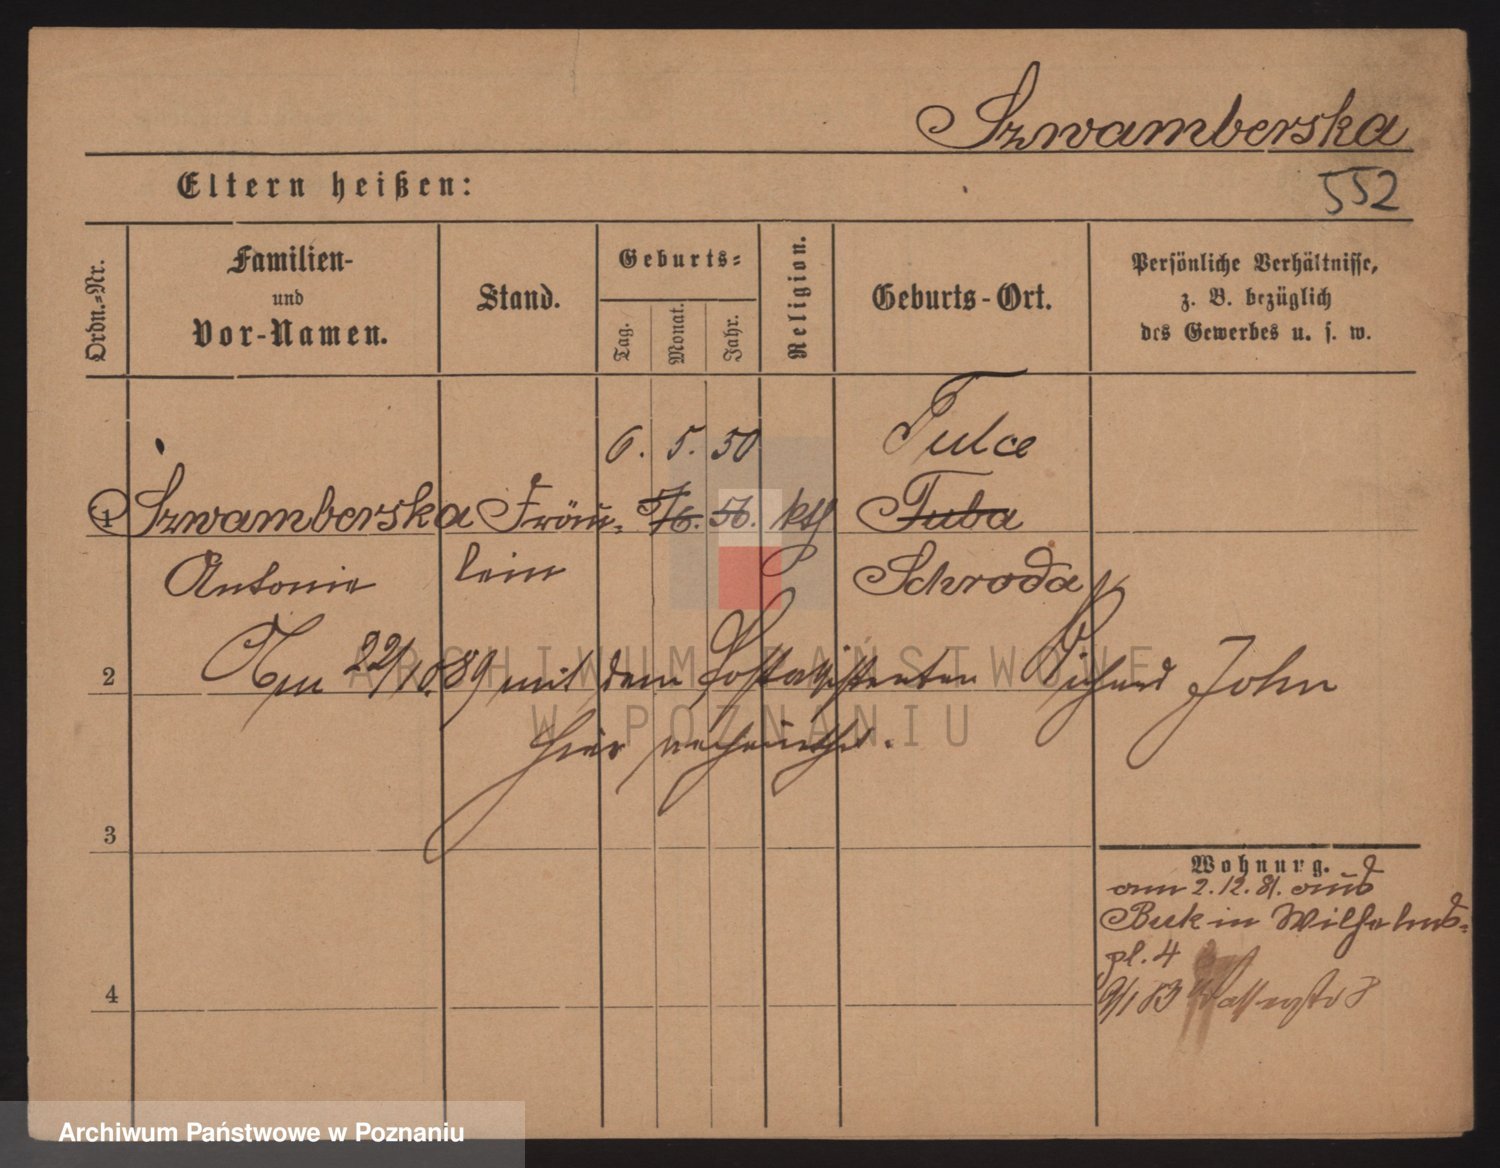 Szwamberska
Eltern heißen:
552
Ordn.-Nr.
Familien-
und
Vor-Namen.
Stand.
Geburts-
Tag.
Monat.
Jahr.
Religion.
Geburts-Ort.
Persönliche Verhältnisse,
z. B. bezüglich
des Gewerbes u. s. w.
6. 5. 50 Tulce
1 Szwamberska Fräu- 5/6. 56. kth Tuba
Antonie lein Schroda
2 Am 22/10.89 mit dem Postassistenten Richard John
hier verheirathet.
3
Wohnung.
am 2.12.81. aus
Buk in Wilhelms-
pl. 4
4
9/1 83 8
ARCHIWUM PAŃSTWOWE
W POZNANIU
Archiwum Państwowe w Poznaniu